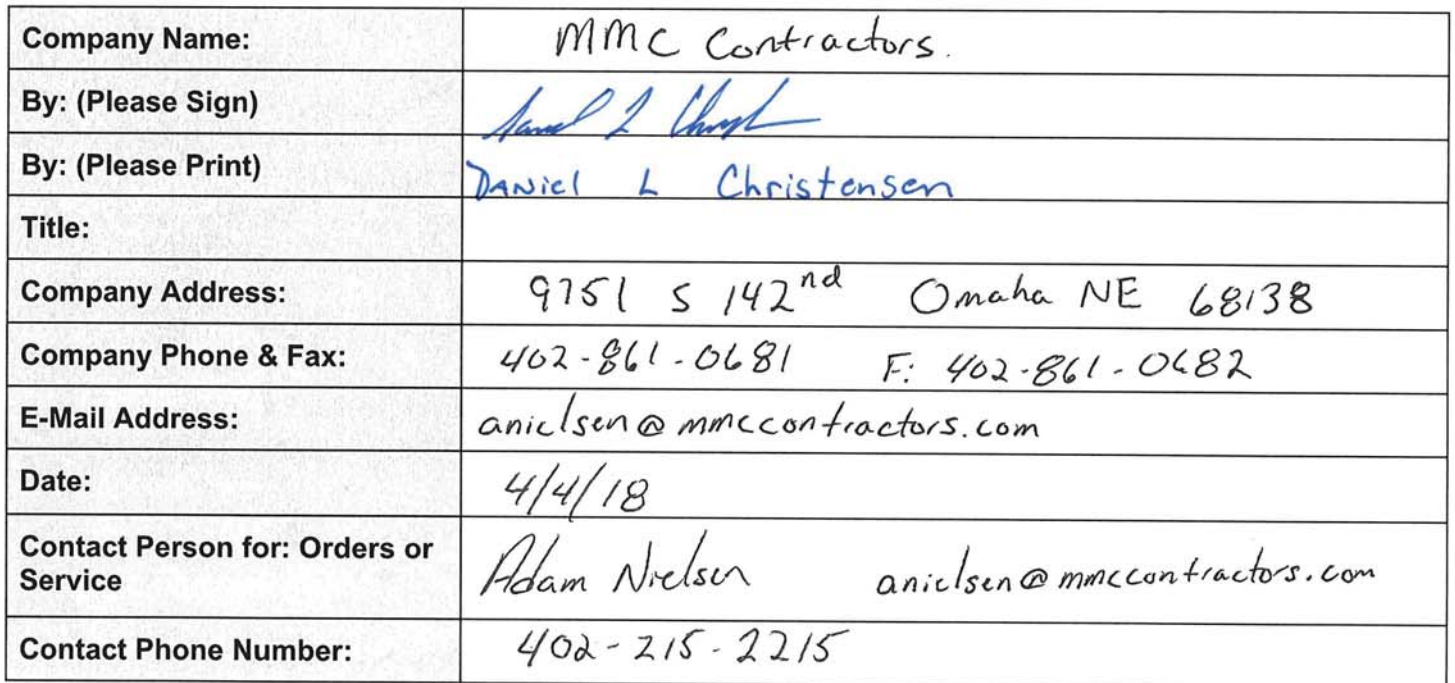 Company Name: MMC Contractors.
By: (Please Sign)
By: (Please Print) Daniel L Christensen
Title:
Company Address: 9751 S 142nd Omaha NE 68138
Company Phone & Fax: 402-861-0681 F: 402-861-0682
E-Mail Address: anielsen@mmccontractors.com
Date: 4/4/18
Contact Person for: Orders or
Service Adam Nielsen anielsen@mmccontractors.com
Contact Phone Number: 402-215-2215